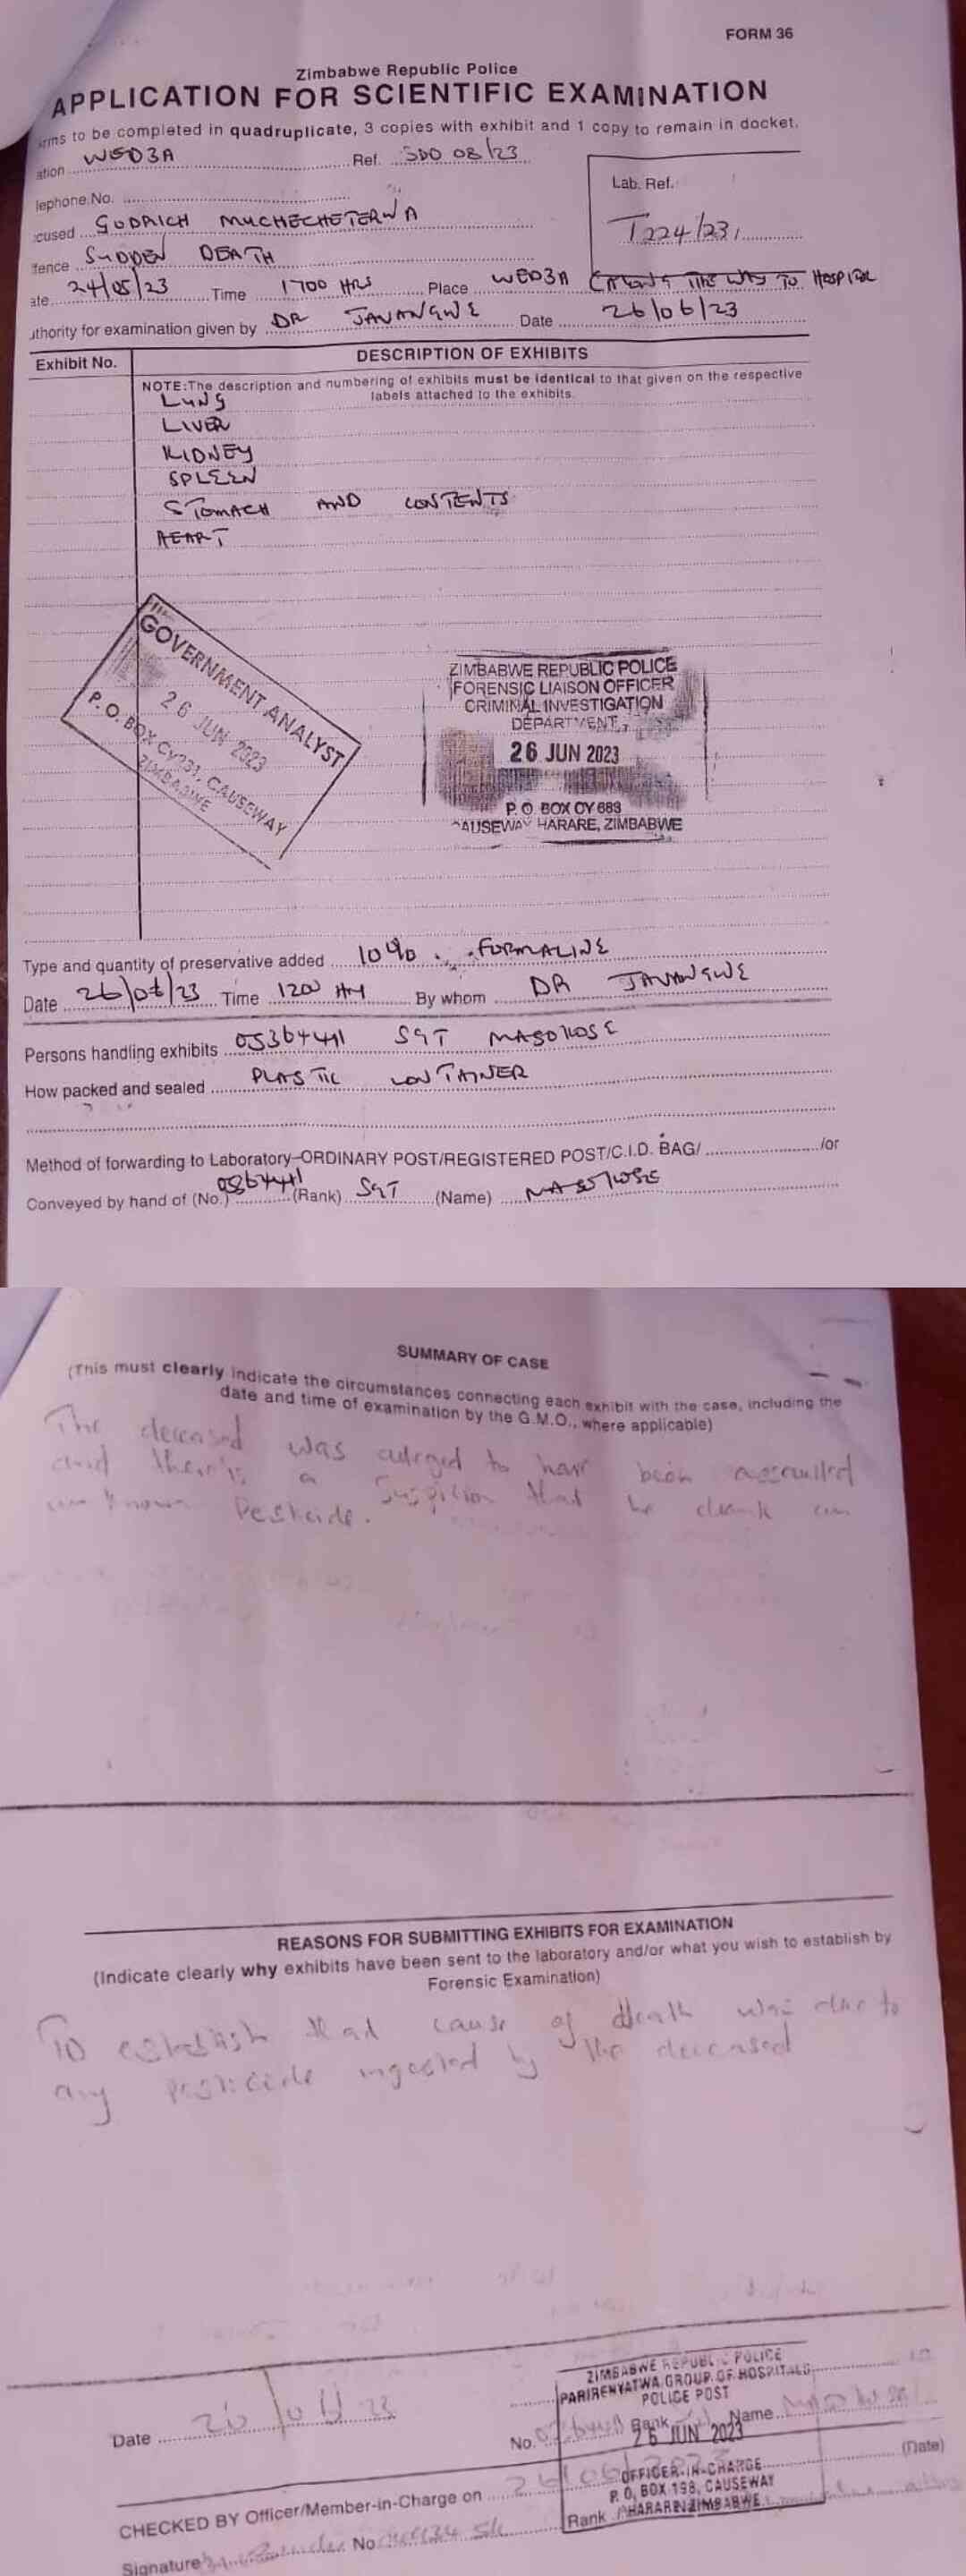 FORM 36
Zimbabwe Republic Police
APPLICATION FOR SCIENTIFIC EXAMINATION
to be completed in quadruplicate, 3 copies with exhibit and 1 copy to remain in docket.
ation WEDZA Ref. SDO 08/23
lephone No.
Lab. Ref.
cused GODRICH MUCHECHETERWA
T224/23
fence SUDDEN DEATH
ate 24/05/23 Time 1700 HRS Place WEDZA (ALONG THE WAY TO HOSPITAL
uthority for examination given by DR JAVANGWE Date 26/06/23
Exhibit No. DESCRIPTION OF EXHIBITS
NOTE: The description and numbering of exhibits must be identical to that given on the respective
labels attached to the exhibits.
LUNG
LIVER
KIDNEY
SPLEEN
STOMACH AND CONTENTS
HEART
GOVERNMENT ANALYST
26 JUN 2023
P. O. BOX CY231, CAUSEWAY
ZIMBABWE
ZIMBABWE REPUBLIC POLICE
FORENSIC LIAISON OFFICER
CRIMINAL INVESTIGATION
DEPARTMENT,
26 JUN 2023
P. O. BOX CY 683
CAUSEWAY HARARE, ZIMBABWE
Type and quantity of preservative added 10% FORMALINE
Date 26/06/23 Time 1200 Hrs By whom DR JAVANGWE
Persons handling exhibits SGT
How packed and sealed PLASTIC CONTAINER
Method of forwarding to Laboratory–ORDINARY POST/REGISTERED POST/C.I.D. BAG/ /or
Conveyed by hand of (No.) (Rank) SGT (Name)
SUMMARY OF CASE
(This must clearly indicate the circumstances connecting each exhibit with the case, including the
date and time of examination by the G.M.O., where applicable)
The deceased was alleged to have been assaulted
and there is a suspicion that he drank an
unknown Pesticide.
REASONS FOR SUBMITTING EXHIBITS FOR EXAMINATION
(Indicate clearly why exhibits have been sent to the laboratory and/or what you wish to establish by
Forensic Examination)
To establish that cause of death was due to
any pesticide ingested by the deceased
ZIMBABWE REPUBLIC POLICE
PARIRENYATWA GROUP OF HOSPITALS
POLICE POST
Date No. Rank Name
26 JUN 2023
(Date)
OFFICER-IN-CHARGE
P. O. BOX 198, CAUSEWAY
HARARE ZIMBABWE
CHECKED BY Officer/Member-in-Charge on
Signature No Rank